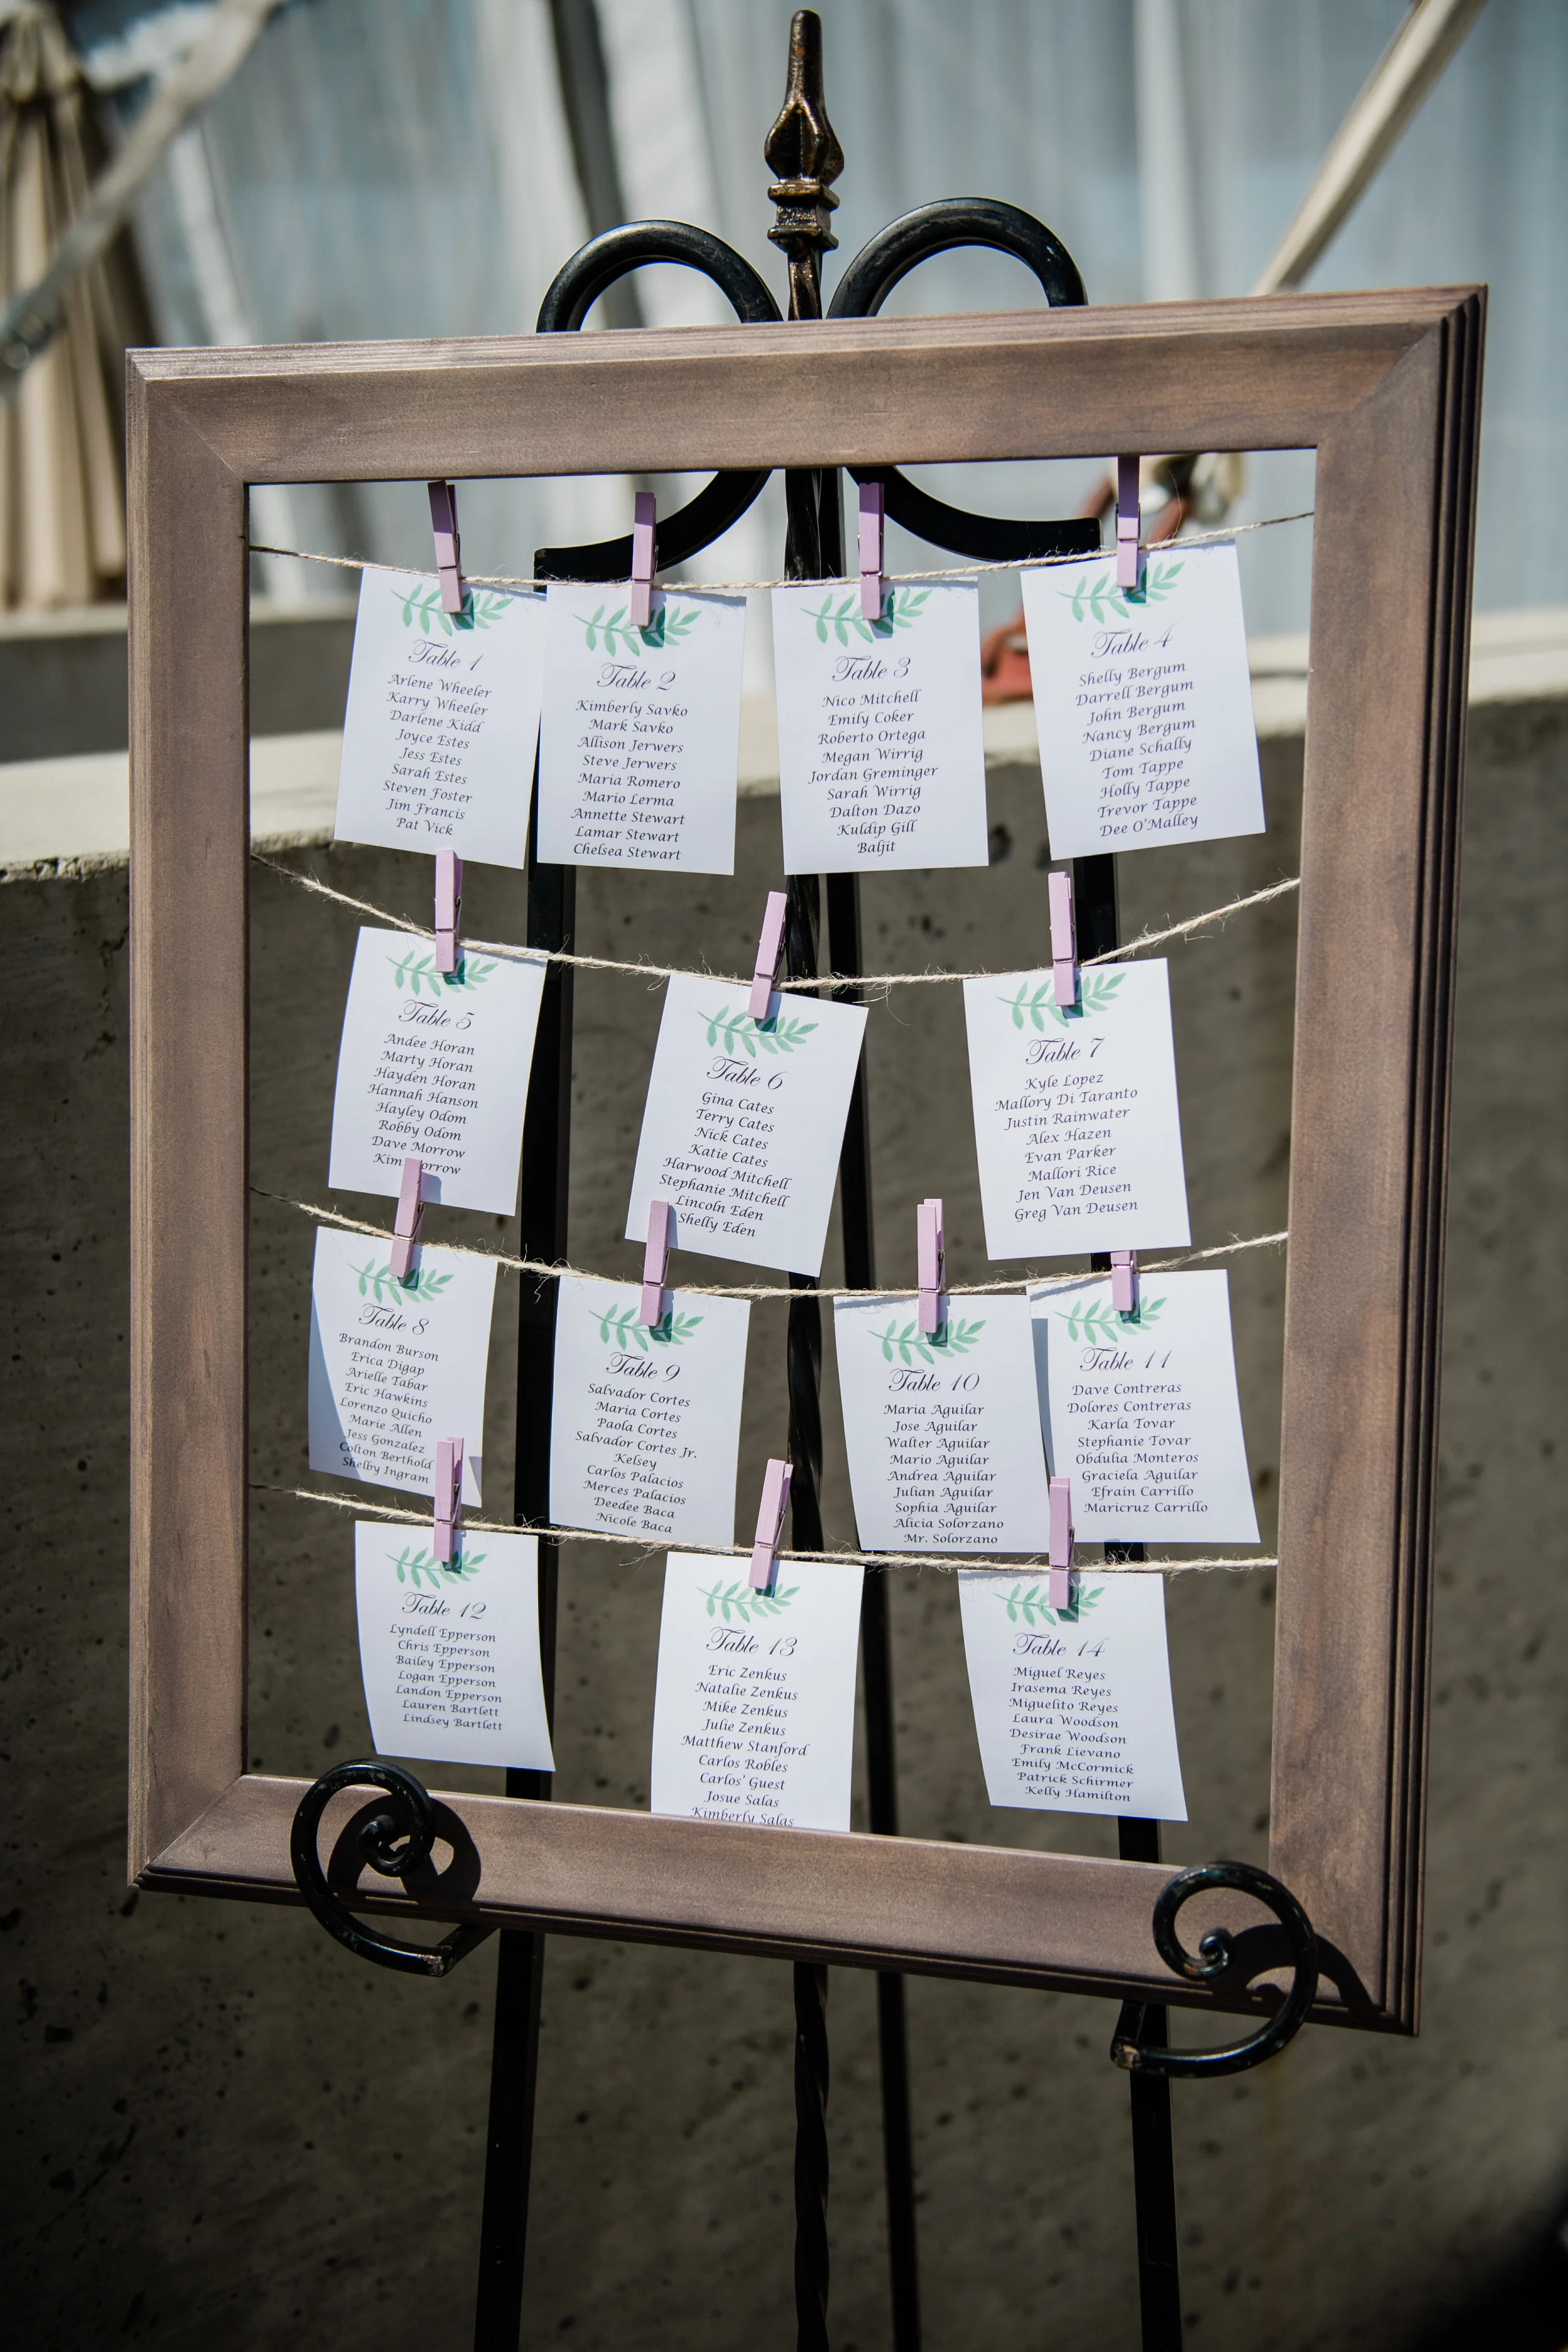 Table 1
Arlene Wheeler
Karry Wheeler
Darlene Kidd
Joyce Estes
Jess Estes
Sarah Estes
Steven Foster
Jim Francis
Pat Vick
Table 2
Kimberly Savko
Mark Savko
Allison Jerwers
Steve Jerwers
Maria Romero
Mario Lerma
Annette Stewart
Lamar Stewart
Chelsea Stewart
Table 3
Nico Mitchell
Emily Coker
Roberto Ortega
Megan Wirrig
Jordan Greminger
Sarah Wirrig
Dalton Dazo
Kuldip Gill
Baljit
Table 4
Shelly Bergum
Darrell Bergum
John Bergum
Nancy Bergum
Diane Schally
Tom Tappe
Holly Tappe
Trevor Tappe
Dee O'Malley
Table 5
Andee Horan
Marty Horan
Hayden Horan
Hannah Hanson
Hayley Odom
Robby Odom
Dave Morrow
Kim
Table 6
Gina Cates
Terry Cates
Nick Cates
Katie Cates
Harwood Mitchell
Stephanie Mitchell
Lincoln Eden
Shelly Eden
Table 7
Kyle Lopez
Mallory Di Taranto
Justin Rainwater
Alex Hazen
Evan Parker
Mallori Rice
Jen Van Deusen
Greg Van Deusen
Table 8
Brandon Burson
Erica Digap
Arielle Tabar
Eric Hawkins
Lorenzo Quicho
Marie Allen
Jess Gonzalez
Colton Berthold
Shelby Ingram
Table 9
Salvador Cortes
Maria Cortes
Paola Cortes
Salvador Cortes Jr.
Kelsey
Carlos Palacios
Merces Palacios
Deedee Baca
Nicole Baca
Table 10
Maria Aguilar
Jose Aguilar
Walter Aguilar
Mario Aguilar
Andrea Aguilar
Julian Aguilar
Sophia Aguilar
Alicia Solorzano
Mr. Solorzano
Table 11
Dave Contreras
Dolores Contreras
Karla Tovar
Stephanie Tovar
Obdulia Monteros
Graciela Aguilar
Efrain Carrillo
Maricruz Carrillo
Table 12
Lyndell Epperson
Chris Epperson
Bailey Epperson
Logan Epperson
Landon Epperson
Lauren Bartlett
Lindsey Bartlett
Table 13
Eric Zenkus
Natalie Zenkus
Mike Zenkus
Julie Zenkus
Matthew Stanford
Carlos Robles
Carlos' Guest
Josue Salas
Kimberly Salas
Table 14
Miguel Reyes
Irasema Reyes
Miguelito Reyes
Laura Woodson
Desirae Woodson
Frank Lievano
Emily McCormick
Patrick Schirmer
Kelly Hamilton